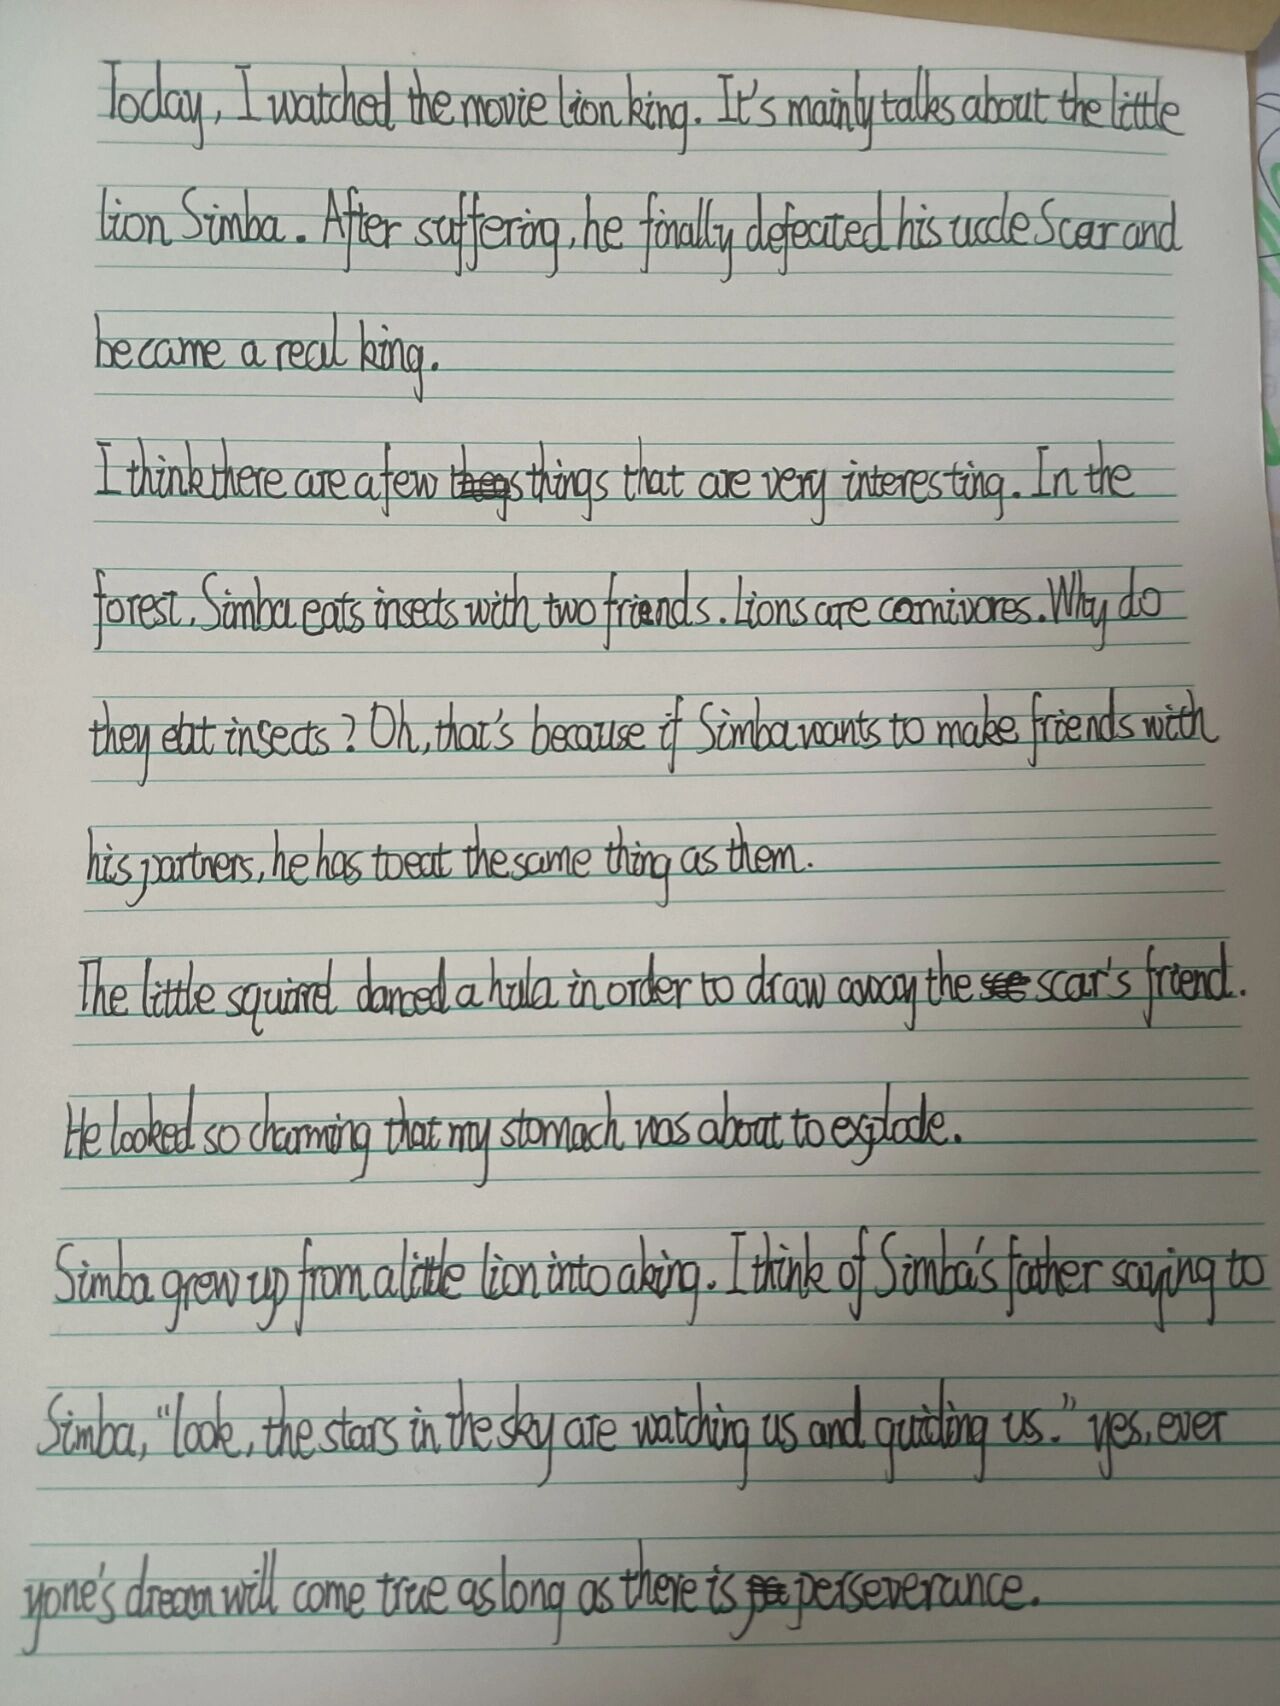 Today, I watched the movie lion king. It's mainly talks about the little
lion Simba. After suffering, he finally defeated his uncle Scar and
became a real king.
I think there are a few things that are very interesting. In the
forest, Simba eats insects with two friends. Lions are carnivores. Why do
they eat insects? Oh, that's because if Simba wants to make friends with
his partners, he has to eat the same thing as them.
The little squirrel danced a hula in order to draw away the scar's friend.
He looked so charming that my stomach was about to explode.
Simba grew up from a little lion into a king. I think of Simba's father saying to
Simba, "look, the stars in the sky are watching us and guiding us." yes, ever
yone's dream will come true as long as there is perseverance.